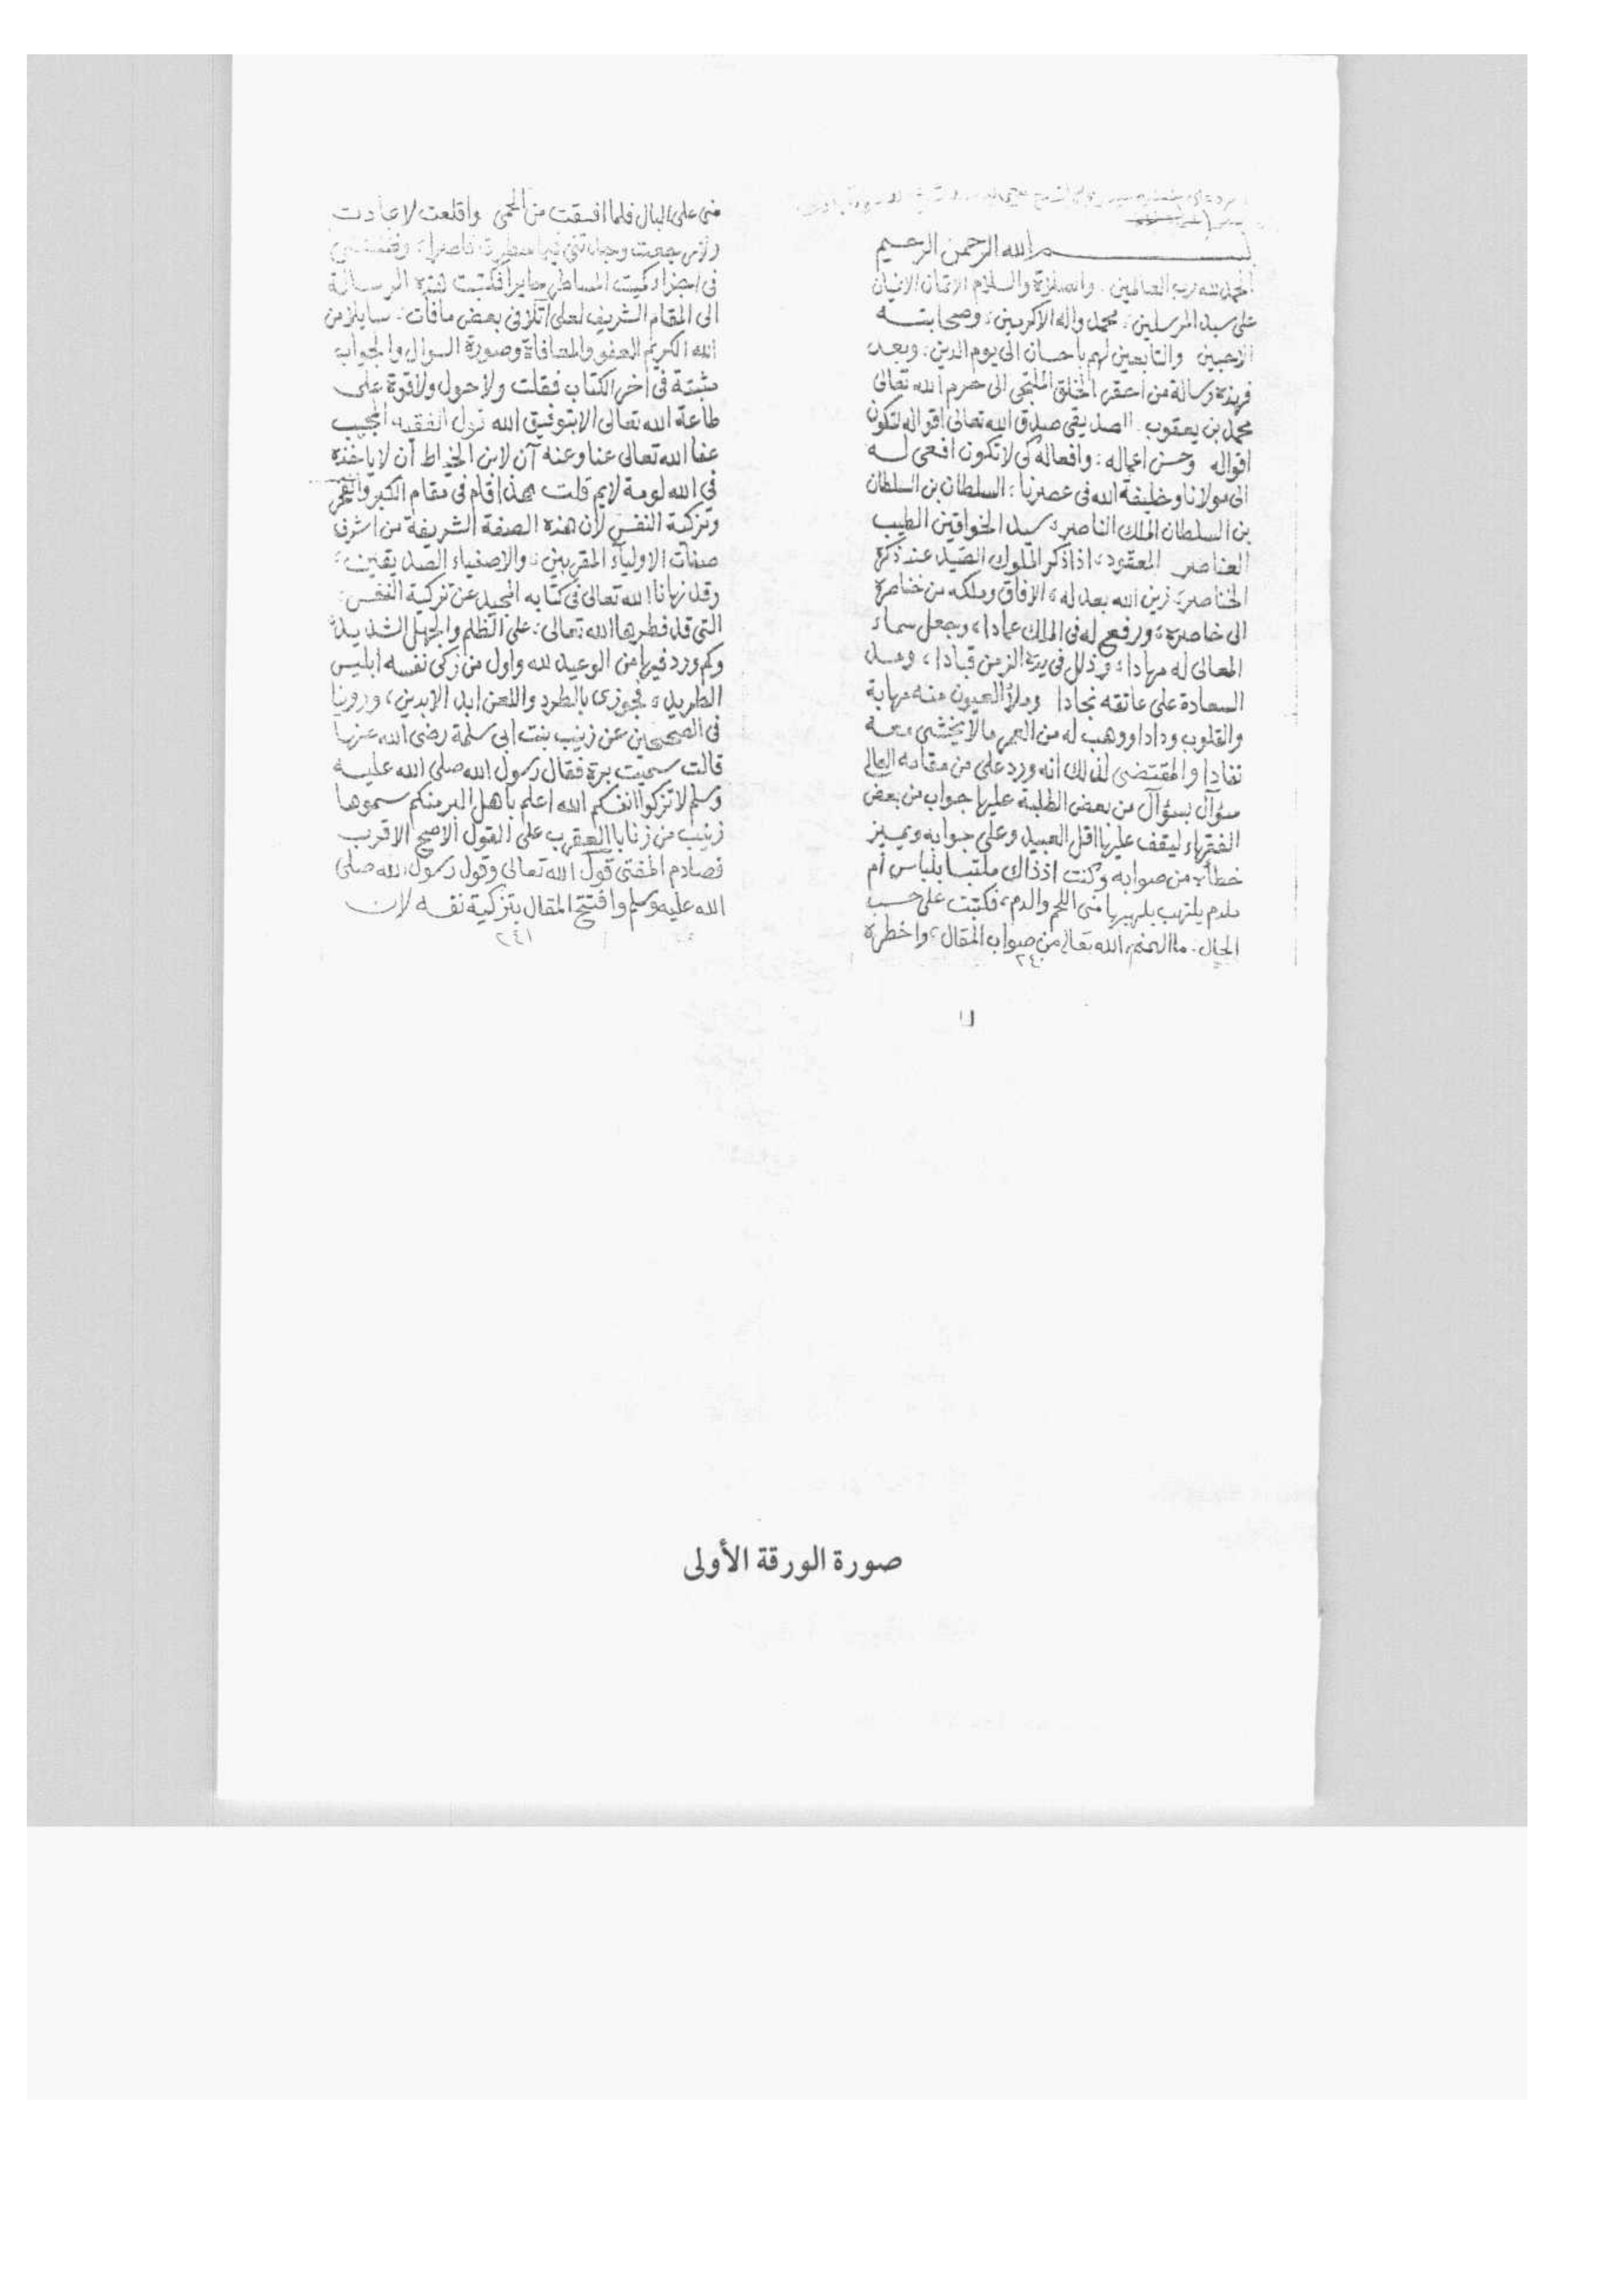 بسم الله الرحمن الرحيم
الحمد لله رب العالمين. والصلاة والسلام الاتمان الانيان
على سيد المرسلين. محمد واله الاكرمين. وصحابته
الاحبين والتابعين لهم باحسان الى يوم الدين. وبعد
فهذه رسالة من احقر الخلق الملتجى الى حرم الله تعالى
محمد بن يعقوب. الصديقى صدق الله تعالى اقواله لتكون
اقواله وحسن اعماله. وافعاله كى لا تكون افعى له
الى مولانا وخليفة الله فى عصرنا. السلطان بن السلطان
بن السلطان الملك الناصر. سيد الخواقين الطيب
العناصر المعقود. اذا ذكر الملوك الصيد عند ذكره
الخناصر. زين الله بعدله الافاق وملكه من خناصرة
الى خاصره. ورفع له فى الملك عمادا. وجعل سماء
المعالى له مهادا. وذلل فى يده الزمن قيادا. ومد
السعادة على عاتقه نجادا وملأ العيون منه مهابة
والقلوب ودادا ووهب له من العمر مالا يخشى معه
نفادا والمقتضى لذلك انه ورد على من مقامه العالى
سؤال بسؤال من بعض الطلبة عليها جواب من بعض
الفقهاء ليقف عليها اقل العبيد وعلى جوابه ويميز
خطأه من صوابه وكنت اذذاك ملتبسا بلباس أم
ملدم يلتهب بلهيبها منى اللحم والدم، فكتبت على حسب
الحال. ما الهمنى الله تعالى من صواب المقال، واخطره
٢٤٠
منى على البال فلما افيقت من الحمى واقلعت لا عادت
ولا رجعت وجدتنى
فكتبت هذه الرسالة
الى المقام الشريف لعلى اتلافى بعض مافات. سايلا من
الله الكريم العفو والمعافاة وصورة السوال والجواب
مثبتة فى اخر الكتاب فقلت ولا حول ولا قوة على
طاعة الله تعالى الا بتوفيق الله قول الفقيه المجيب
عفا الله تعالى عنا وعنه آن لابن الخياط أن لا ياخذه
فى الله لومة لايم قلت هذا قام فى مقام الكبر والفخر
وتزكية النفس لأن هذه الصفة الشريفة من اشرف
صفات الاولياء المقربين. والاصفياء الصديقين.
وقد نهانا الله تعالى فى كتابه المجيد عن تزكية النفس.
التى قد فطرها الله تعالى. على الظلم والجهل الشديد
وكم ورد فيها من الوعيد لله واول من زكى نفسه ابليس
الطريد، فجوزى بالطرد واللعن ابد الابدين، وروينا
فى الصحيحين عن زينب بنت ابى سلمة رضى الله عنها
قالت سميت برة فقال رسول الله صلى الله عليه
وسلم لا تزكوا انفسكم الله اعلم باهل البر منكم سموها
زينب من زنابا العقرب على القول الاصح الاقرب
فصادم المفتى قول الله تعالى وقول رسول الله صلى
الله عليه وسلم وافتتح المقال بتزكية نفسه لان
٢٤١
صورة الورقة الأولى